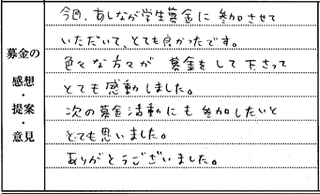 今回、あしなが学生募金に参加させて
いただいて、とても良かったです。
色々な方々が 募金をして下さって
とても感動しました。
次の募金活動にも参加したいと
とても思いました。
ありがとうございました。
募金の
感想
・
提案
意見